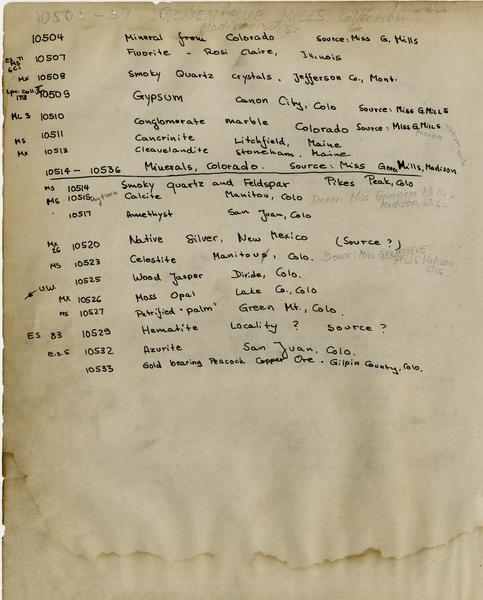 GENEVIEVE MILLS Collection
Madison, Wis.
10504 Mineral from Colorado Source: Miss G. Mills
10507 Fluorite - Rosi Claire, Illinois
MX 10508 Smoky Quartz crystals. Jefferson Co., Mont.
10509 Gypsum Canon City, Colo Source: Miss G. Mills
ML 3 10510 Conglomerate marble Colorado Source: Miss G. Mills
MS 10511 Cancrinite Litchfield, Maine
MX 10513 Cleavelandite Stoneham, Maine
10514 - 10536 Minerals, Colorado. Source: Miss Gene Mills, Madison
MS 10514 Smoky quartz and Feldspar Pikes Peak, Colo
MS 10515 Calcite Manitou, Colo Donor: Miss Genevieve Mills
Madison, Wis.
10517 Amethyst San Juan, Colo
MX 26 10520 Native Silver, New Mexico (Source?)
MS 10523 Celestite Manitou, Colo. Donor: Miss GENEVIEVE
Mills, Madison,
Wis.
U.W. 10525 Wood Jasper Divide, Colo.
MX 10526 Moss Opal Lake Co., Colo
MS 10527 Petrified "palm" Green Mt., Colo.
ES 83 10529 Hematite Locality ? Source ?
E.S.5 10532 Azurite San Juan, Colo.
10533 Gold bearing Peacock Copper Ore - Gilpin County, Colo.